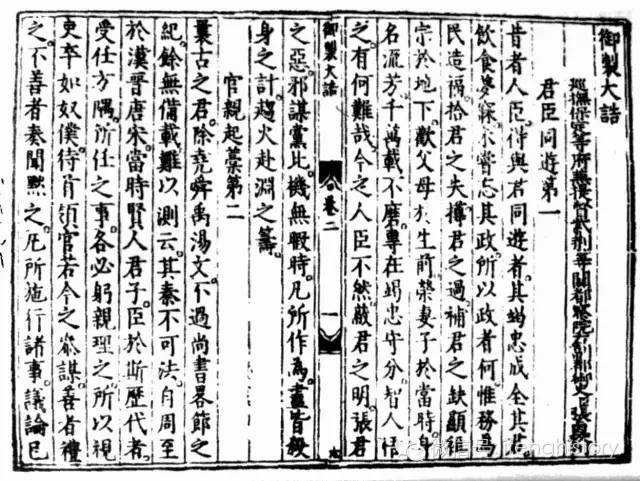 御製大誥
巡撫保定等府兼提督紫荊等關都察院右副都御史張
君臣同遊第一
昔者人臣得與君同遊者其竭忠成全其君
飲食夢寐未嘗忘其政所以政者何惟務為
民造福拾君之失撙君之過補君之缺顯祖
宗於地下歡父母於生前榮妻子於當時身
名流芳千萬載不磨專在竭忠守分智人悟
之有何難哉今之人臣不然蔽君之明張君
御製大誥 卷二 一
之惡邪謀黨比機無暇時凡所作為盡皆殺
身之計趨火赴淵之籌
官親起藁第二
曩古之君除堯舜禹湯文不過尚書畧節之
紀餘無備載難以測云其秦不可法自周至
於漢晉唐宋當時賢人君子臣於斯歷代者
受任方隅所任之事各必躬親理之所以視
吏卒如奴僕待首領官若今之叅謀善者禮
之不善者奏聞黜之凡所施行諸事議論已